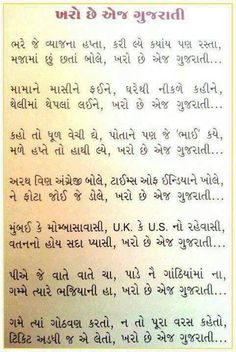 ખરો છે એજ ગુજરાતી
ભરે જે વ્યાજના હપ્તા, કરી લ્યે કયાંય પણ રસ્તા,
મજામાં છું છતાં બોલે, ખરો છે એજ ગુજરાતી...
મામાને માસીને ફઈને, ઘરેથી નીકળે કહીને,
થેલીમાં થેપલાં લઈને, ખરો છે એજ ગુજરાતી...
કહો તો ધૂળ વેચી દયે, પોતાને પણ જે 'ભાઈ' કયે,
મળે હપ્તે તો હાથી લ્યે, ખરો છે એજ ગુજરાતી...
અરથ વિણ અંગ્રેજી બોલે, ટાઈમ્સ ઓફ ઈન્ડિયાને ખોલે,
ને ફોટા જોઈ જે ડોલે, ખરો છે એજ ગુજરાતી...
મુંબઈ કે મોમ્બાસાવાસી, U.K. કે U.S. નો રહેવાસી,
વતનનો હોય સદા પ્યાસી, ખરો છે એજ ગુજરાતી...
પીએ જે વાતે વાતે ચા, પાડે નૈ ગાંઠિયાંમાં ના,
ગમ્મે ત્યારે ભજિયાની હા, ખરો છે એજ ગુજરાતી...
ગમે ત્યાં ગોઠવણ કરતો, ન તો પૂરા વરસ કહેતો,
ટિકિટ અડધી જ એ લેતો, ખરો છે એજ ગુજરાતી...